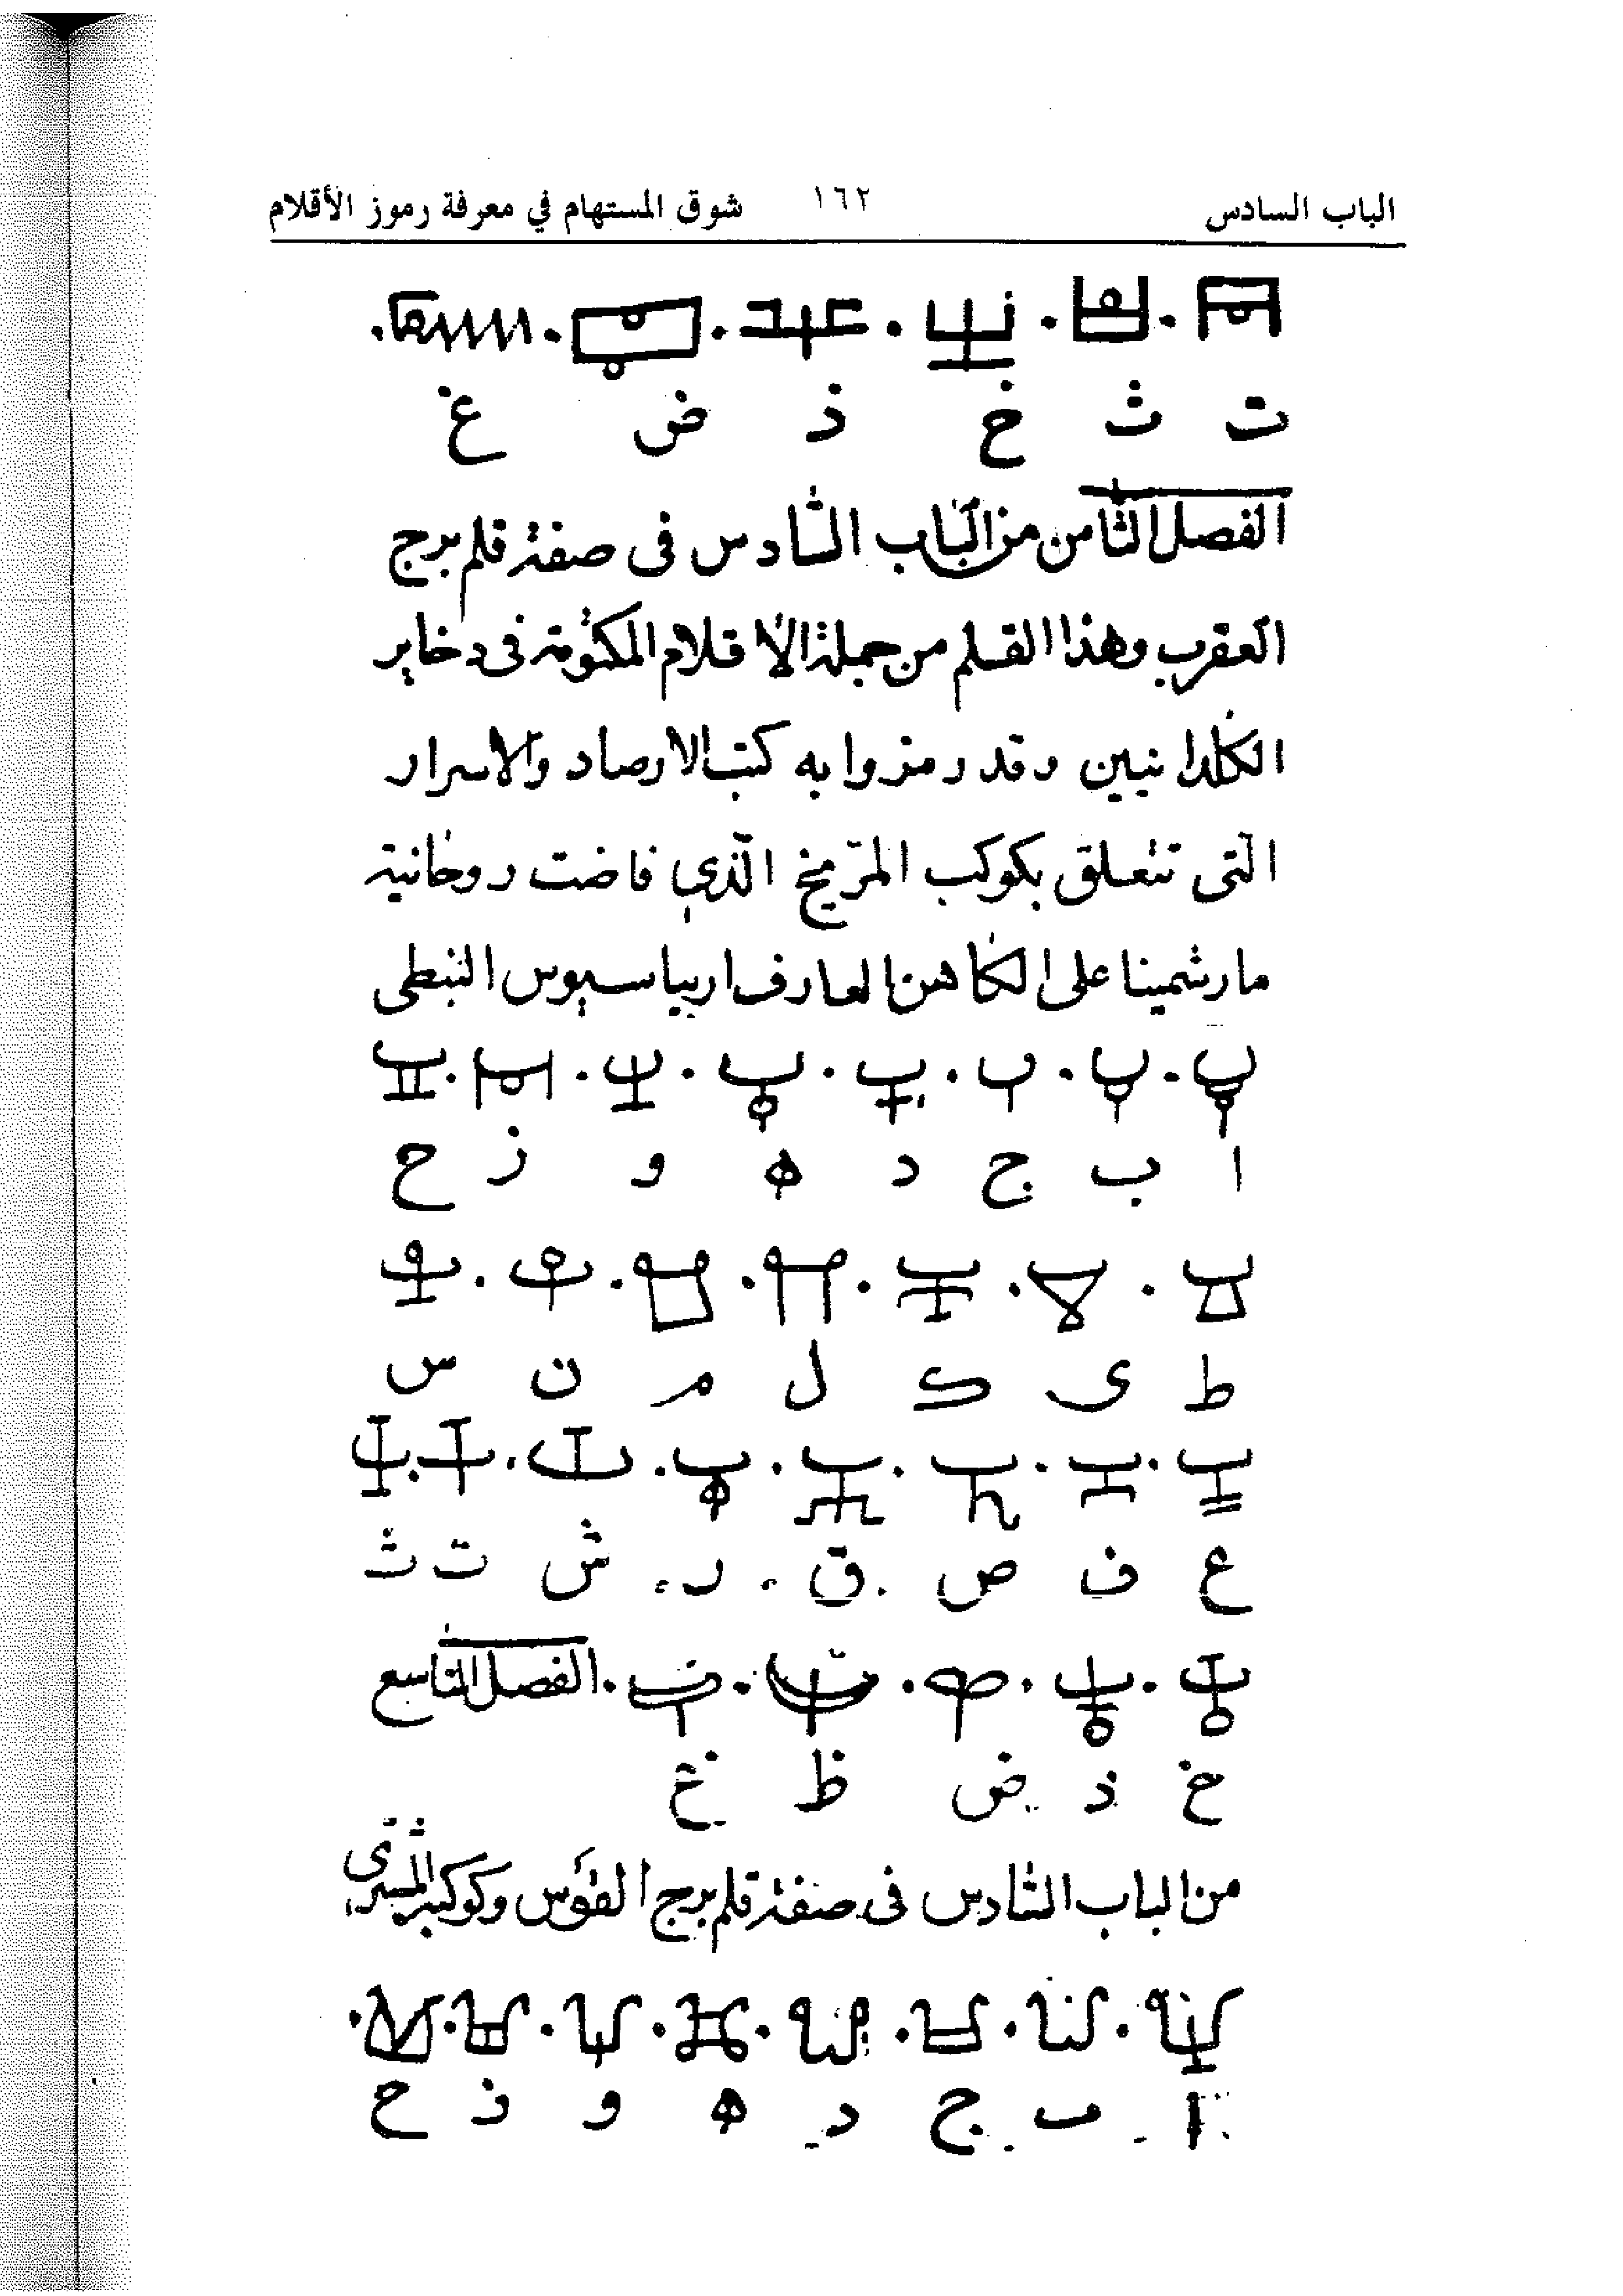 الباب السادس ١٦٢ شوق المستهام في معرفة رموز الأقلام
ت ث خ ذ ض غ
الفصل الثامن من الباب السادس فى صفة قلم برج
العقرب وهذا القلم من جملة الاقلام المكتومة فى دخاير
الكلدانيين وقد رمزوا به كتب الارصاد والاسرار
التى تتعلق بكوكب المريخ الذي فاضت روحانية
مارشمينا على الكاهن العارف اريباسيوس النبطى
ا ب ج د ه و ز ح
ط ى ك ل م ن س
ع ف ص ق ر ش ت ث
الفصل التاسع
خ ذ ض ظ غ
من الباب السادس فى صفة قلم برج القوس وكوكبه المشترى
ا ب ج د ه و ذ ح